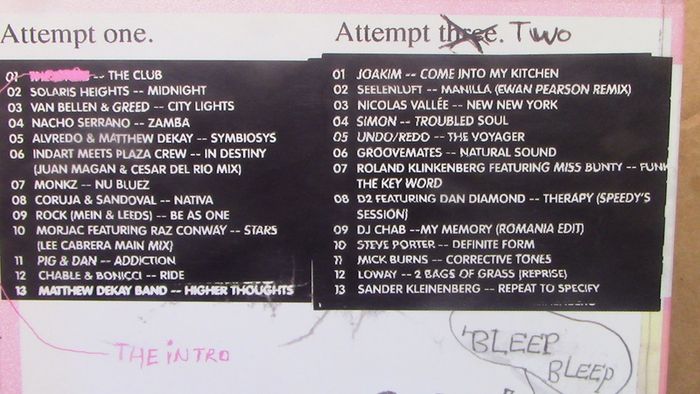 Attempt one.
01 -- THE CLUB
02 SOLARIS HEIGHTS -- MIDNIGHT
03 VAN BELLEN & GREED -- CITY LIGHTS
04 NACHO SERRANO -- ZAMBA
05 ALVREDO & MATTHEW DEKAY -- SYMBIOSYS
06 INDART MEETS PLAZA CREW -- IN DESTINY
(JUAN MAGAN & CESAR DEL RIO MIX)
07 MONKZ -- NU BLUEZ
08 CORUJA & SANDOVAL -- NATIVA
09 ROCK (MEIN & LEEDS) -- BE AS ONE
10 MORJAC FEATURING RAZ CONWAY -- STARS
(LEE CABRERA MAIN MIX)
11 PIG & DAN -- ADDICTION
12 CHABLE & BONICCI -- RIDE
13 MATTHEW DEKAY BAND -- HIGHER THOUGHTS
THE iNTRO
Attempt three. TWO
01 JOAKIM -- COME INTO MY KITCHEN
02 SEELENLUFT -- MANILLA (EWAN PEARSON REMIX)
03 NICOLAS VALLÉE -- NEW NEW YORK
04 SIMON -- TROUBLED SOUL
05 UNDO/REDO -- THE VOYAGER
06 GROOVEMATES -- NATURAL SOUND
07 ROLAND KLINKENBERG FEATURING MISS BUNTY -- FUNK
THE KEY WORD
08 D2 FEATURING DAN DIAMOND -- THERAPY (SPEEDY'S
SESSION)
09 DJ CHAB --MY MEMORY (ROMANIA EDIT)
10 STEVE PORTER -- DEFINITE FORM
11 MICK BURNS -- CORRECTIVE TONES
12 LOWAY -- 2 BAGS OF GRASS (REPRISE)
13 SANDER KLEINENBERG -- REPEAT TO SPECIFY
BLEEP
BLEEP